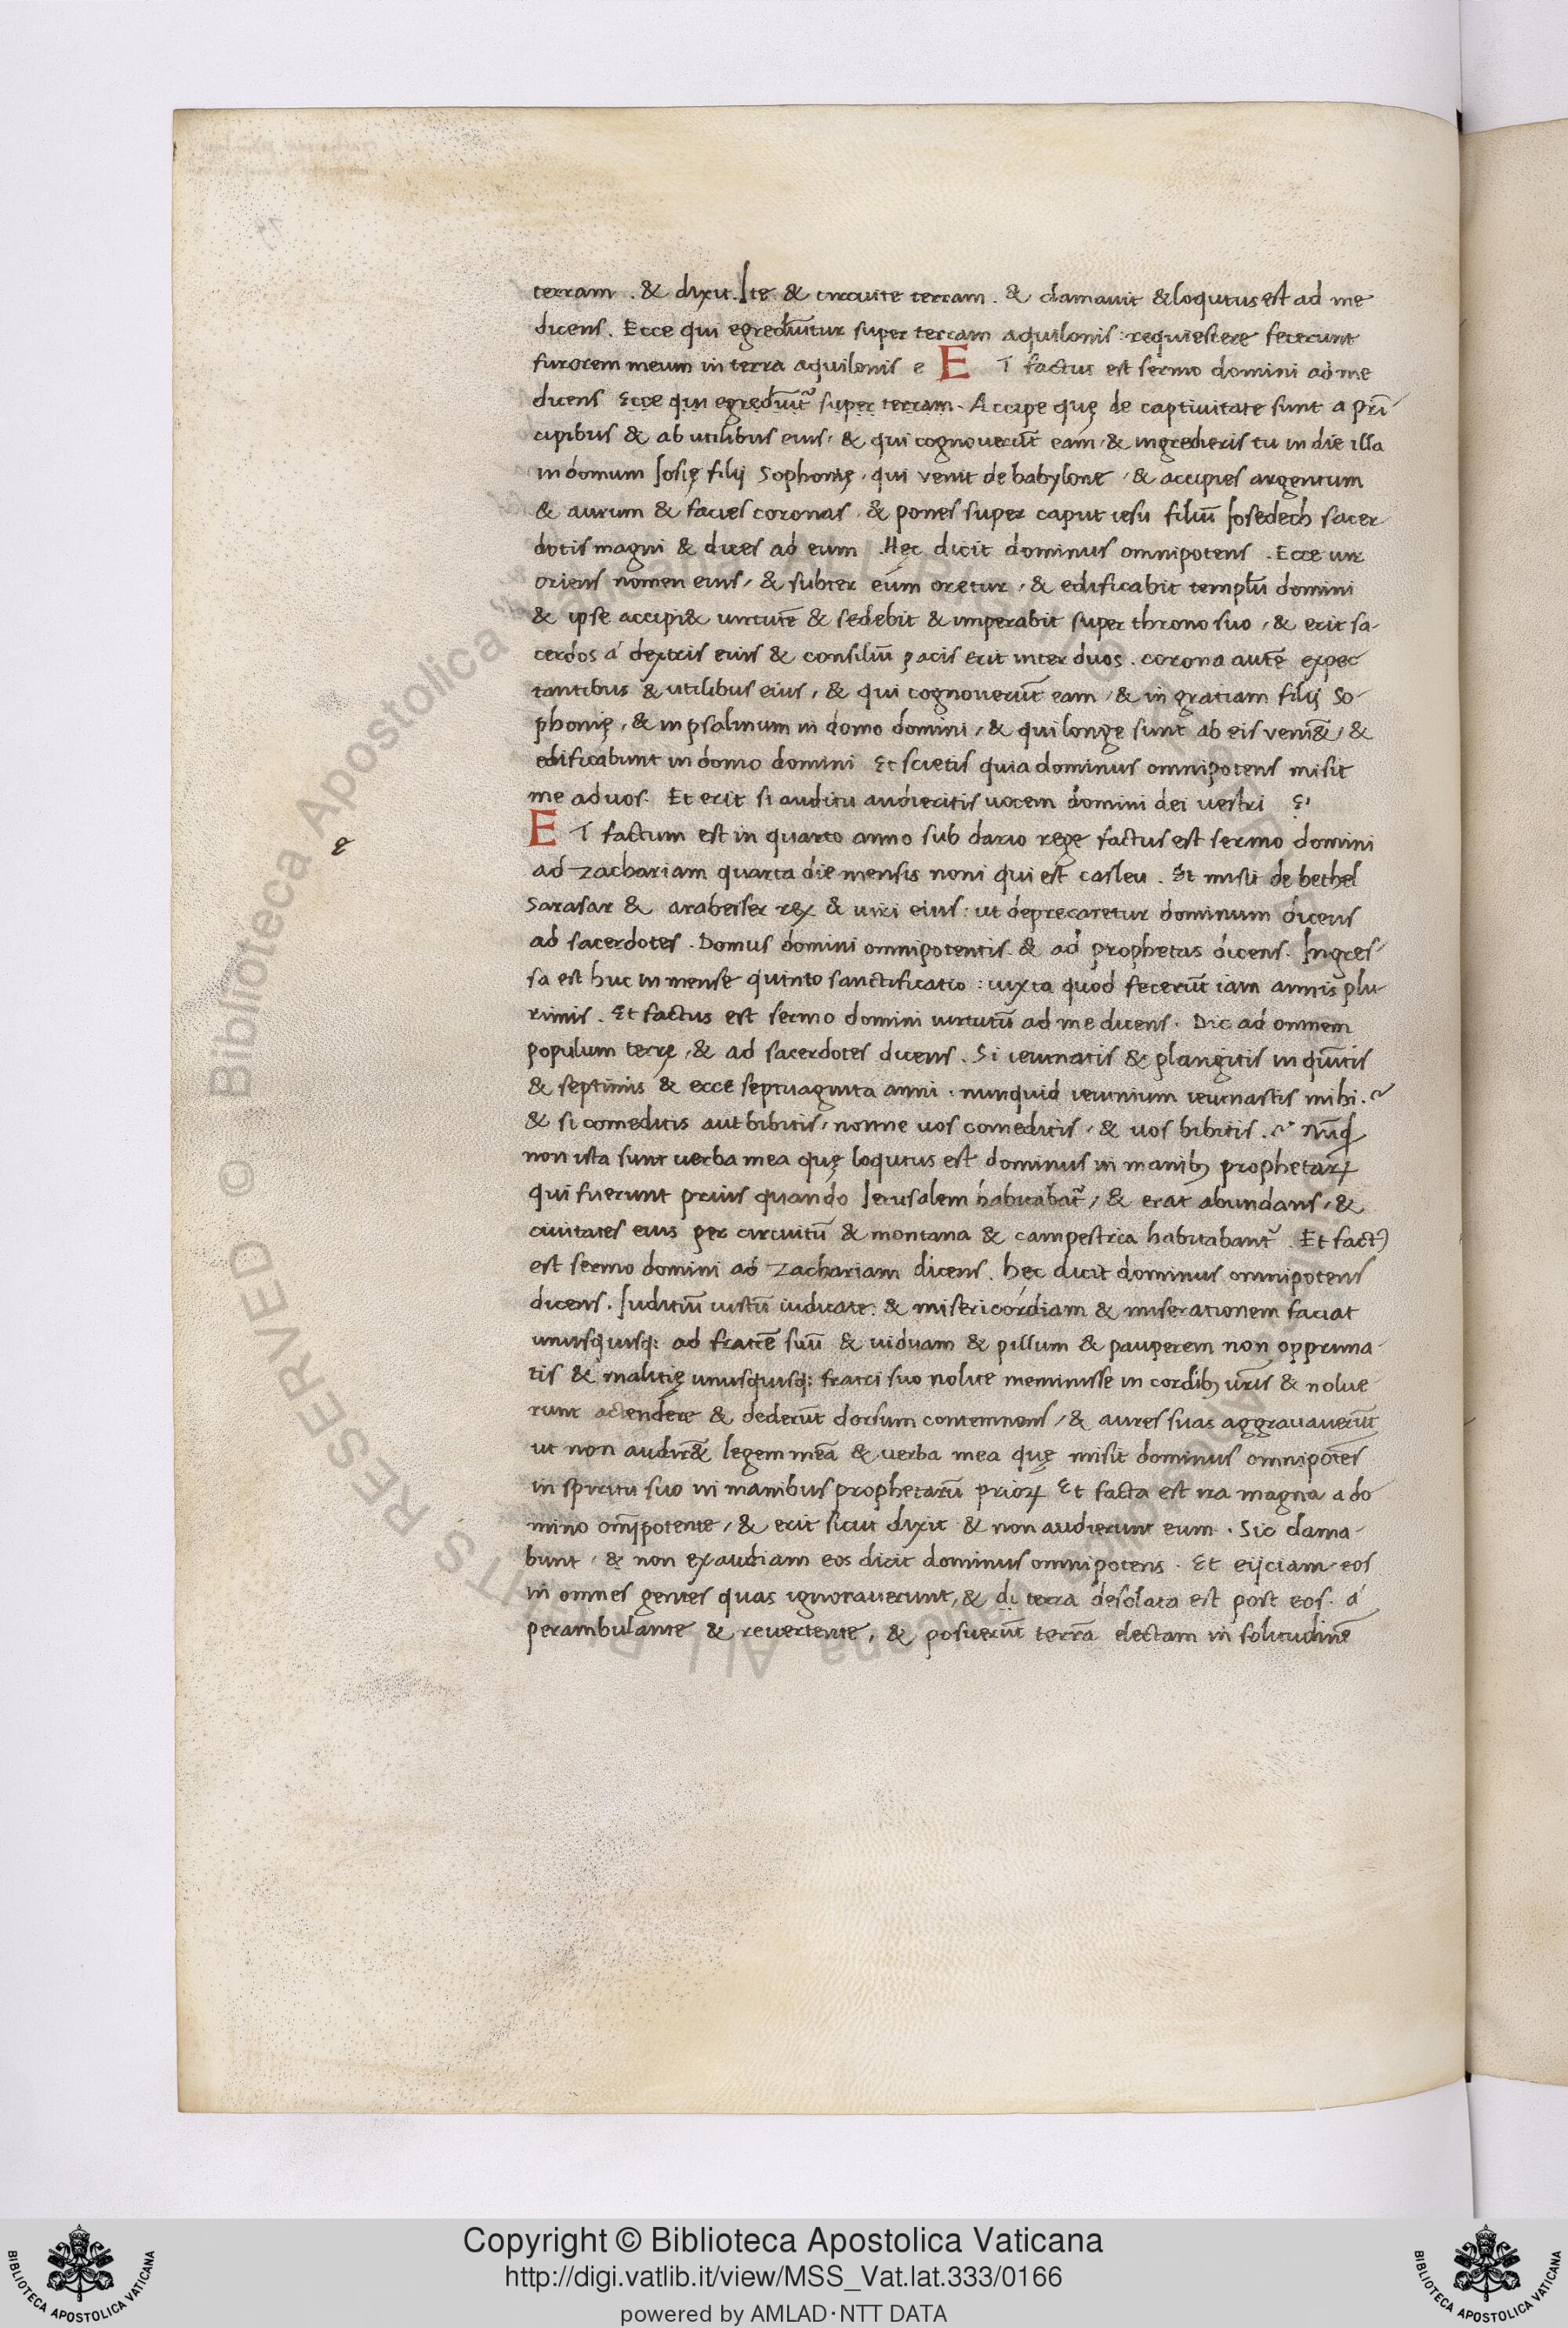 terram . & dixit . Ite & circuite terram . & clamavit & loqutus est ad me
dicens . Ecce qui egrediūtur super terram aquilonis : requiescere fecerunt
furorem meum in terra aquilonis e E T factus est sermo domini ad me
dicens Ecce qui egrediūt᷑ super terram . Accipe quę de captivitate sunt a pri̅
cipibus & ab utilibus eius, & qui cognoverūt eam, & ingredieris tu in die illa
in domum Iosię filij Sophonię, qui venit de babylone, & accipies argentum
& aurum & facies coronas, & pones super caput iesu filiū Iosedech sacer
dotis magni & dices ad eum . Hęc dicit dominus omnipotens . Ecce vir
oriens nomen eius, & subter eum oretur, & edificabit templū domini
& ipse accipi& virtutē & sedebit & imperabit super throno suo, & erit sa-
cerdos á dextris eius & consiliū pacis erit inter duos . corona autē expec
tantibus & utilibus eius, & qui cognoverūt eam, & in gratiam filij So-
phonię, & in psalmum in domo domini, & qui longe sunt ab eis veni&, &
edificabunt in domo domini Et scietis quia dominus omnipotens misit
me ad vos . Et erit si auditu audieritis vocem domini dei vestri
e
E T factum est in quarto anno sub dario rege factus est sermo domini
ad zachariam quarta die mensis noni qui est casleu . Et misit de bethel
Sarasar & arabeiser rex & viri eius : ut deprecaretur dominum dicens
ad sacerdotes . Domus domini omnipotentis & ad prophetas dicens . Ingres-
sa est huc in mense quinto sanctificatio : iuxta quod fecerūt iam annis plu-
rimis . Et factus est sermo domini virtutū ad me dicens . Dic ad omnem
populum terrę, & ad sacerdotes dicens . Si ieiunatis & plangitis in qui̅tis
& septimis & ecce septuaginta anni . nunquid ieiunium ieiunastis mihi . ~
& si comeditis aut bibitis, nonne vos comeditis, & vos bibitis . ~ Nūqd
non ista sunt verba mea quę loqutus est dominus in manibꝫ prophetarꝝ
qui fuerunt prius quando Ierusalem habitabat᷑, & erat abundans, &
civitates eius per circuitū & montana & campestria habitabant᷑ . Et factꝰ
est sermo domini ad zachariam dicens . hęc dicit dominus omnipotens
dicens . Iuditiū iustū iudicate : & misericordiam & miserationem faciat
unusquisq: ad fratrē suū & viduam & pillum & pauperem non opprima-
tis & malitię unusquisq: fratri suo nolite meminisse in cordibꝫ vr̅is & nolue
runt attendere & dederūt dorsum contemnens, & aures suas aggravaverūt
ut non audir& legem meā & verba mea quę misit dominus omnipotēs
in spiritu suo in manibus prophetarū priorꝝ Et facta est ira magna a do
mino omīpotente, & erit sicut dixit & non audierunt eum . Sic clama-
bunt, & non exaudiam eos dicit dominus omnipotens . Et eijciam eos
in omnes gentes quas ignoraverunt, & di terra desolata est post eos . á
perambulante & revertente, & posuerūt terrā electam in solitudinē
© Biblioteca Apostolica Vaticana ALL RIGHTS RESERVED
BIBLIOTECA APOSTOLICA VATICANA
Copyright © Biblioteca Apostolica Vaticana
http://digi.vatlib.it/view/MSS_Vat.lat.333/0166
powered by AMLAD·NTT DATA
BIBLIOTECA APOSTOLICA VATICANA